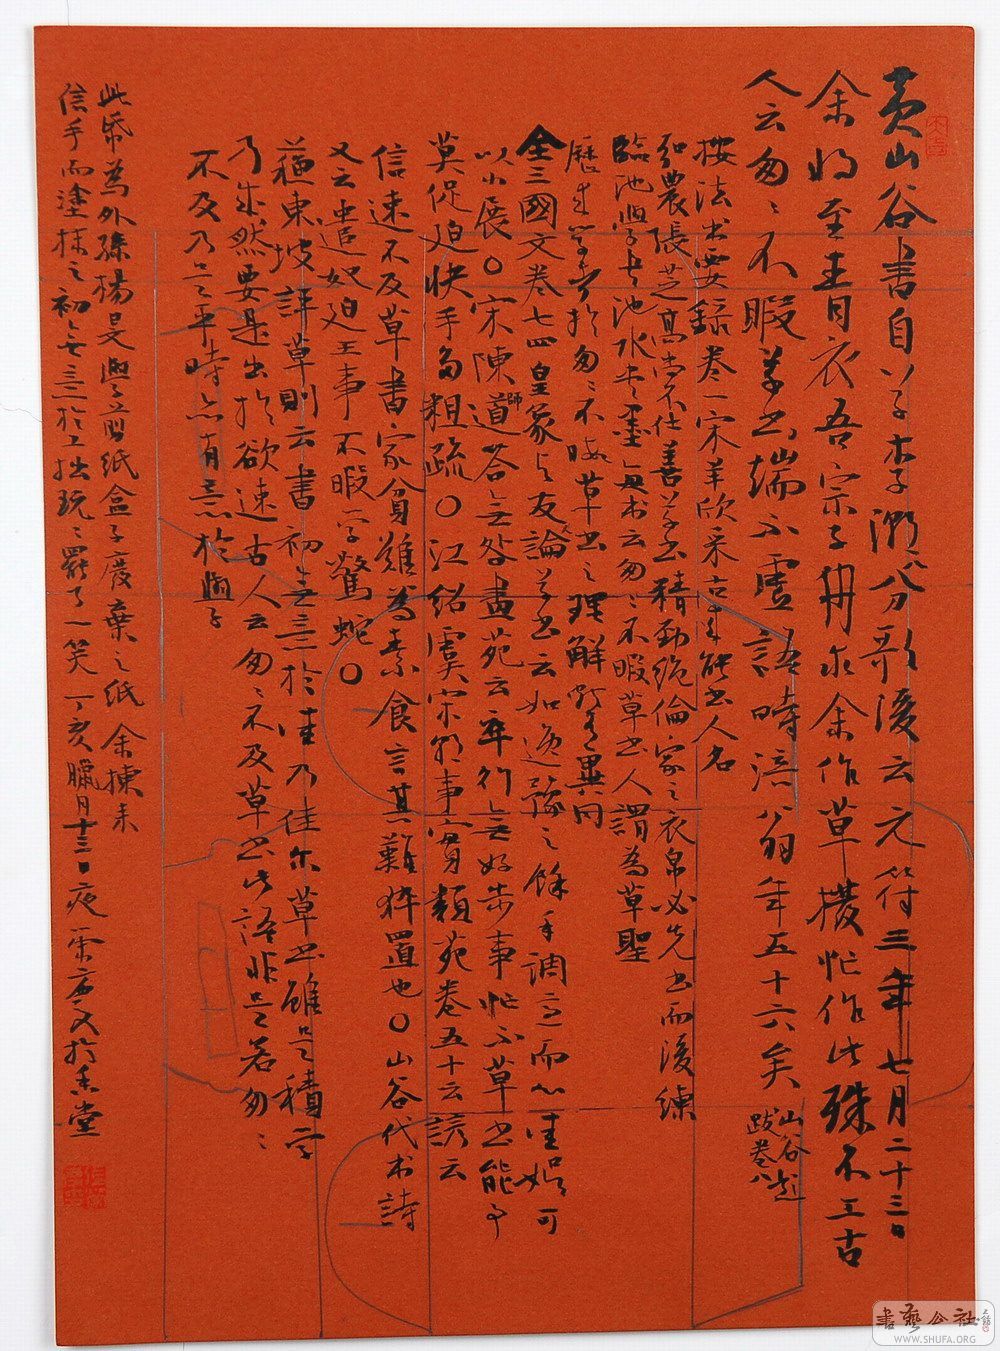 黄山谷書自草李潮八分歌後云元符三年七月二十三日
余將至青衣吾宗子舟求余作草撥忙作此殊不工古
人云匆匆不暇草書端不虛語時涪翁年五十六矣 山谷題跋卷八
按法書要錄卷一宋羊欣采古來能書人名
弘農張芝高尚不仕善草書精勁絕倫家之衣帛必先書而後練
臨池學書池水盡墨每書云匆匆不暇草書人謂為草聖
歷來學者於匆匆不暇草書之理解時有異同
全三國文卷七四皇象與友論草書云如逸豫之餘手調適而心佳娛可
以小展〇宋陳師道答無咎畫苑云卒行無好步事忙不草書能事
莫促迫快手多粗疏〇江紹虞宋朝事實類苑卷五十云諺云
信速不及草書家貧難為素食言其難猝置也〇山谷代書詩
又云遣奴迫王事不暇學驚蛇〇
蘇東坡評草則云書初無意於佳乃佳爾草書雖是積學
乃成然要是出於欲速古人云匆匆不及草書此語非是若匆匆
不及乃是平時亦有意於學
此紙為外孫楊昊學剪紙盒子廢棄之紙余揀來
信手而塗抹之初無意於工拙玩玩罷了一笑丁亥臘月十三日夜